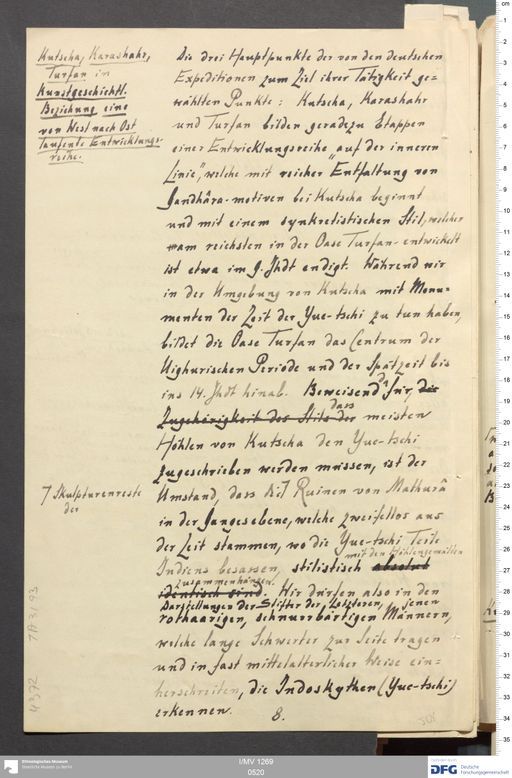 Kutscha, Karashahr,
Turfan in
Kunstgeschichtl.
Beziehung eine
von West nach Ost
laufende Entwicklungs-
reihe.
Die drei Hauptpunkte der von den deutschen
Expeditionen zum Ziel ihrer Tätigkeit ge-
wählten Punkte: Kutscha, Karashahr
und Turfan bilden geradezu Etappen
einer Entwicklungsreihe "auf der inneren
Linie", welche mit reicher Entfaltung von
Gandhâra-motiven bei Kutscha beginnt
und mit einem synkretistischen Stil, welcher
am reichsten in der Oase Turfan entwickelt
ist etwa im 9. Jhdt endigt. Während wir
in der Umgebung von Kutscha mit Monu-
menten der Zeit der Yue-tschi zu tun haben,
bildet die Oase Turfan das Centrum der
Uighurischen Periode und der Spätzeit bis
ins 14. Jhdt hinab. Beweisend dafür, die
Zugehörigkeit des Stils der dass meisten
Höhlen von Kutscha den Yue-tschi
zugeschrieben werden müssen, ist der
7 Skulpturenreste
der
Umstand, dass die 7 Ruinen von Mathurâ
in der Gangesebene, welche zweifellos aus
der Zeit stammen, wo die Yue-tschi Teile
Indiens besassen, stilistisch absolut
mit den Höhlengemälden
identisch sind. zusammenhängen. Wir dürfen also in den
Darstellungen der Stifter der Letzteren, jenen
rothaarigen, schnurrbärtigen Männern,
welche lange Schwerter zur Seite tragen
und in fast mittelalterlicher Weise ein-
herschreiten, die Indoskythen (Yue-tschi)
erkennen.
8.
TA 3193
4372
Ethnologisches Museum
Staatliche Museen zu Berlin
I/MV 1269
0520
DFG
Deutsche
Forschungsgemeinschaft